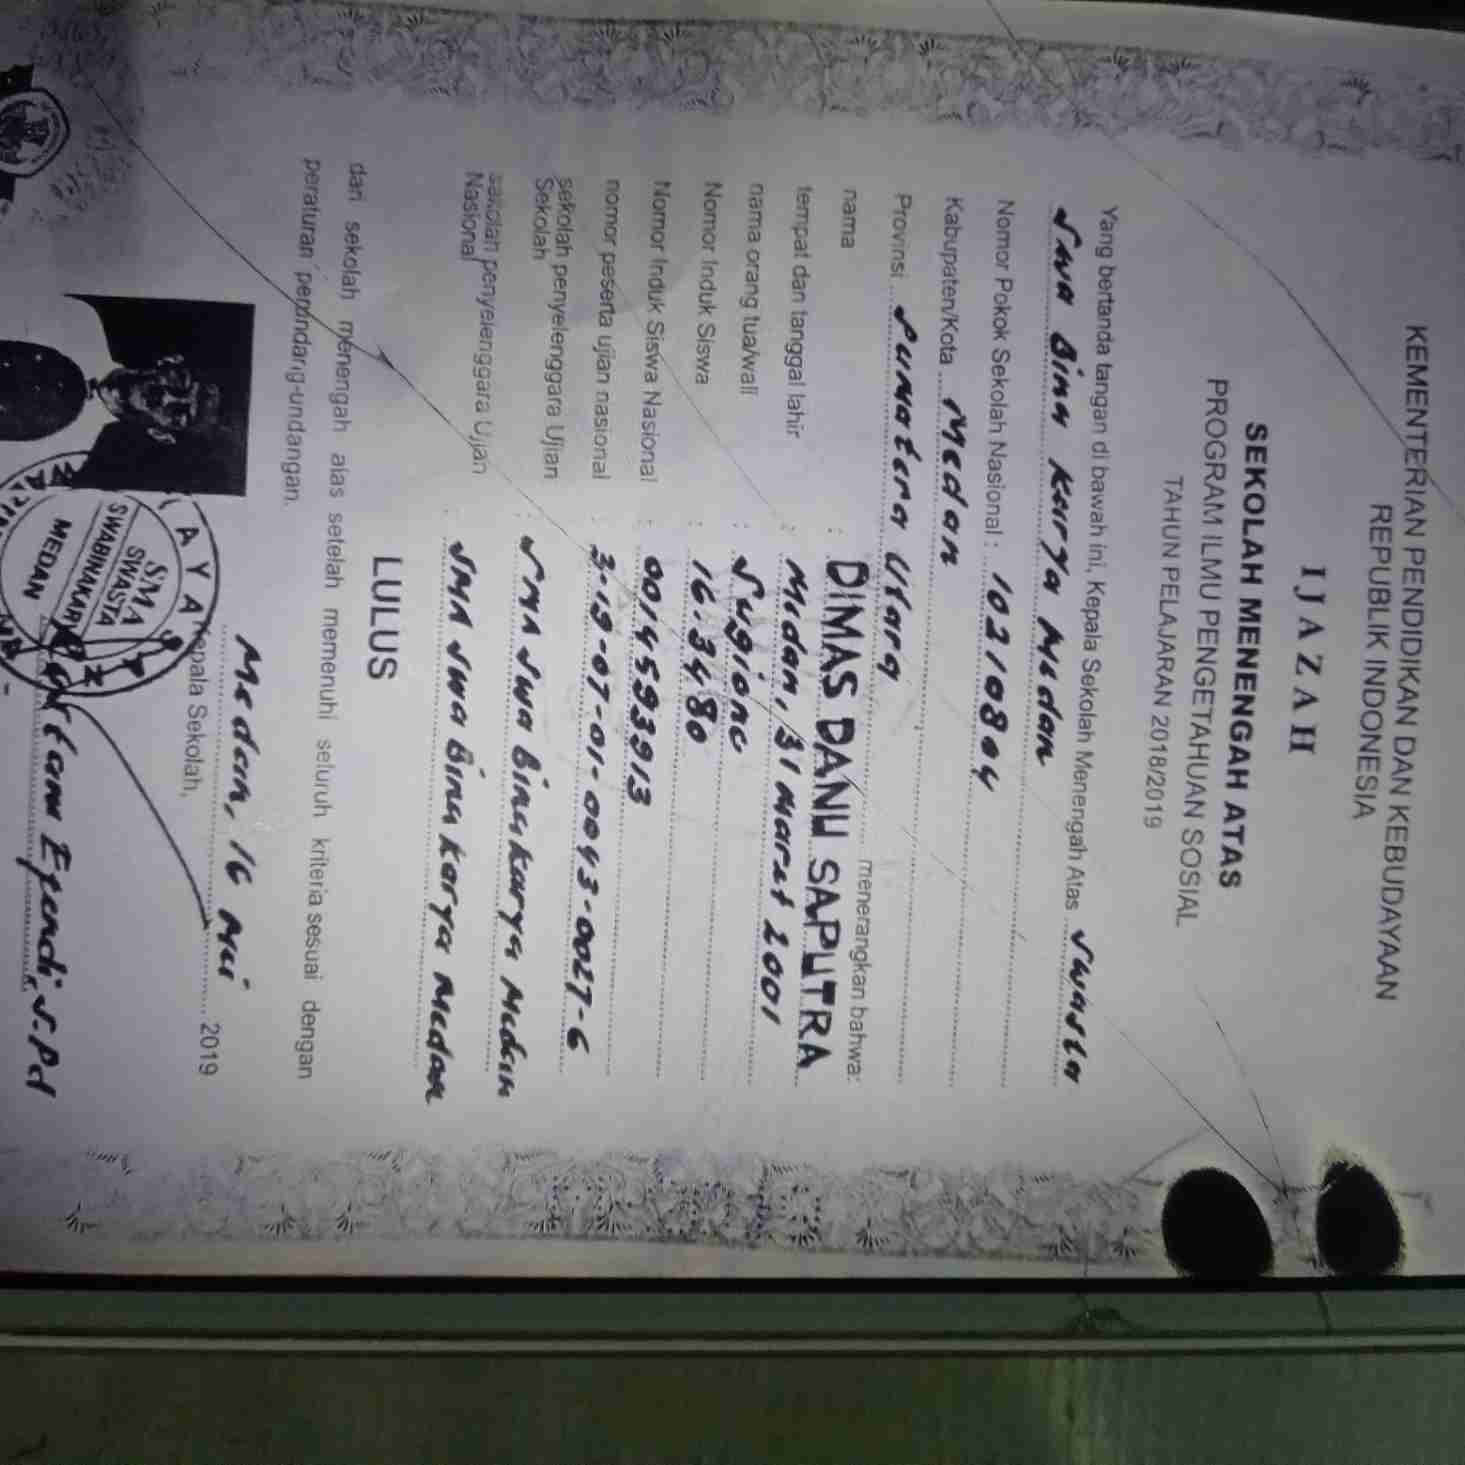 KEMENTERIAN PENDIDIKAN DAN KEBUDAYAAN
REPUBLIK INDONESIA
IJAZAH
SEKOLAH MENENGAH ATAS
PROGRAM ILMU PENGETAHUAN SOSIAL
TAHUN PELAJARAN 2018/2019
Yang bertanda tangan di bawah ini, Kepala Sekolah Menengah Atas Swasta
Swa Bina Karya Medan
Nomor Pokok Sekolah Nasional : 10210804
Kabupaten/Kota Medan
Provinsi Sumatera Utara menerangkan bahwa:
nama : DIMAS DANU SAPUTRA
tempat dan tanggal lahir : Medan, 31 Maret 2001
nama orang tua/wali : Sugiono
Nomor Induk Siswa : 16.3480
Nomor Induk Siswa Nasional : 0014593913
nomor peserta ujian nasional : 3-19-07-01-0043-0027-6
sekolah penyelenggara Ujian : SMA Swa Bina Karya Medan
Sekolah
sekolah penyelenggara Ujian : SMA Swa Bina Karya Medan
Nasional
LULUS
dari sekolah menengah atas setelah memenuhi seluruh kriteria sesuai dengan
peraturan perundang-undangan.
Medan, 16 Mei 2019
Kepala Sekolah,
SMA
SWASTA
SWABINAKARYA
MEDAN
Efendi, S.Pd